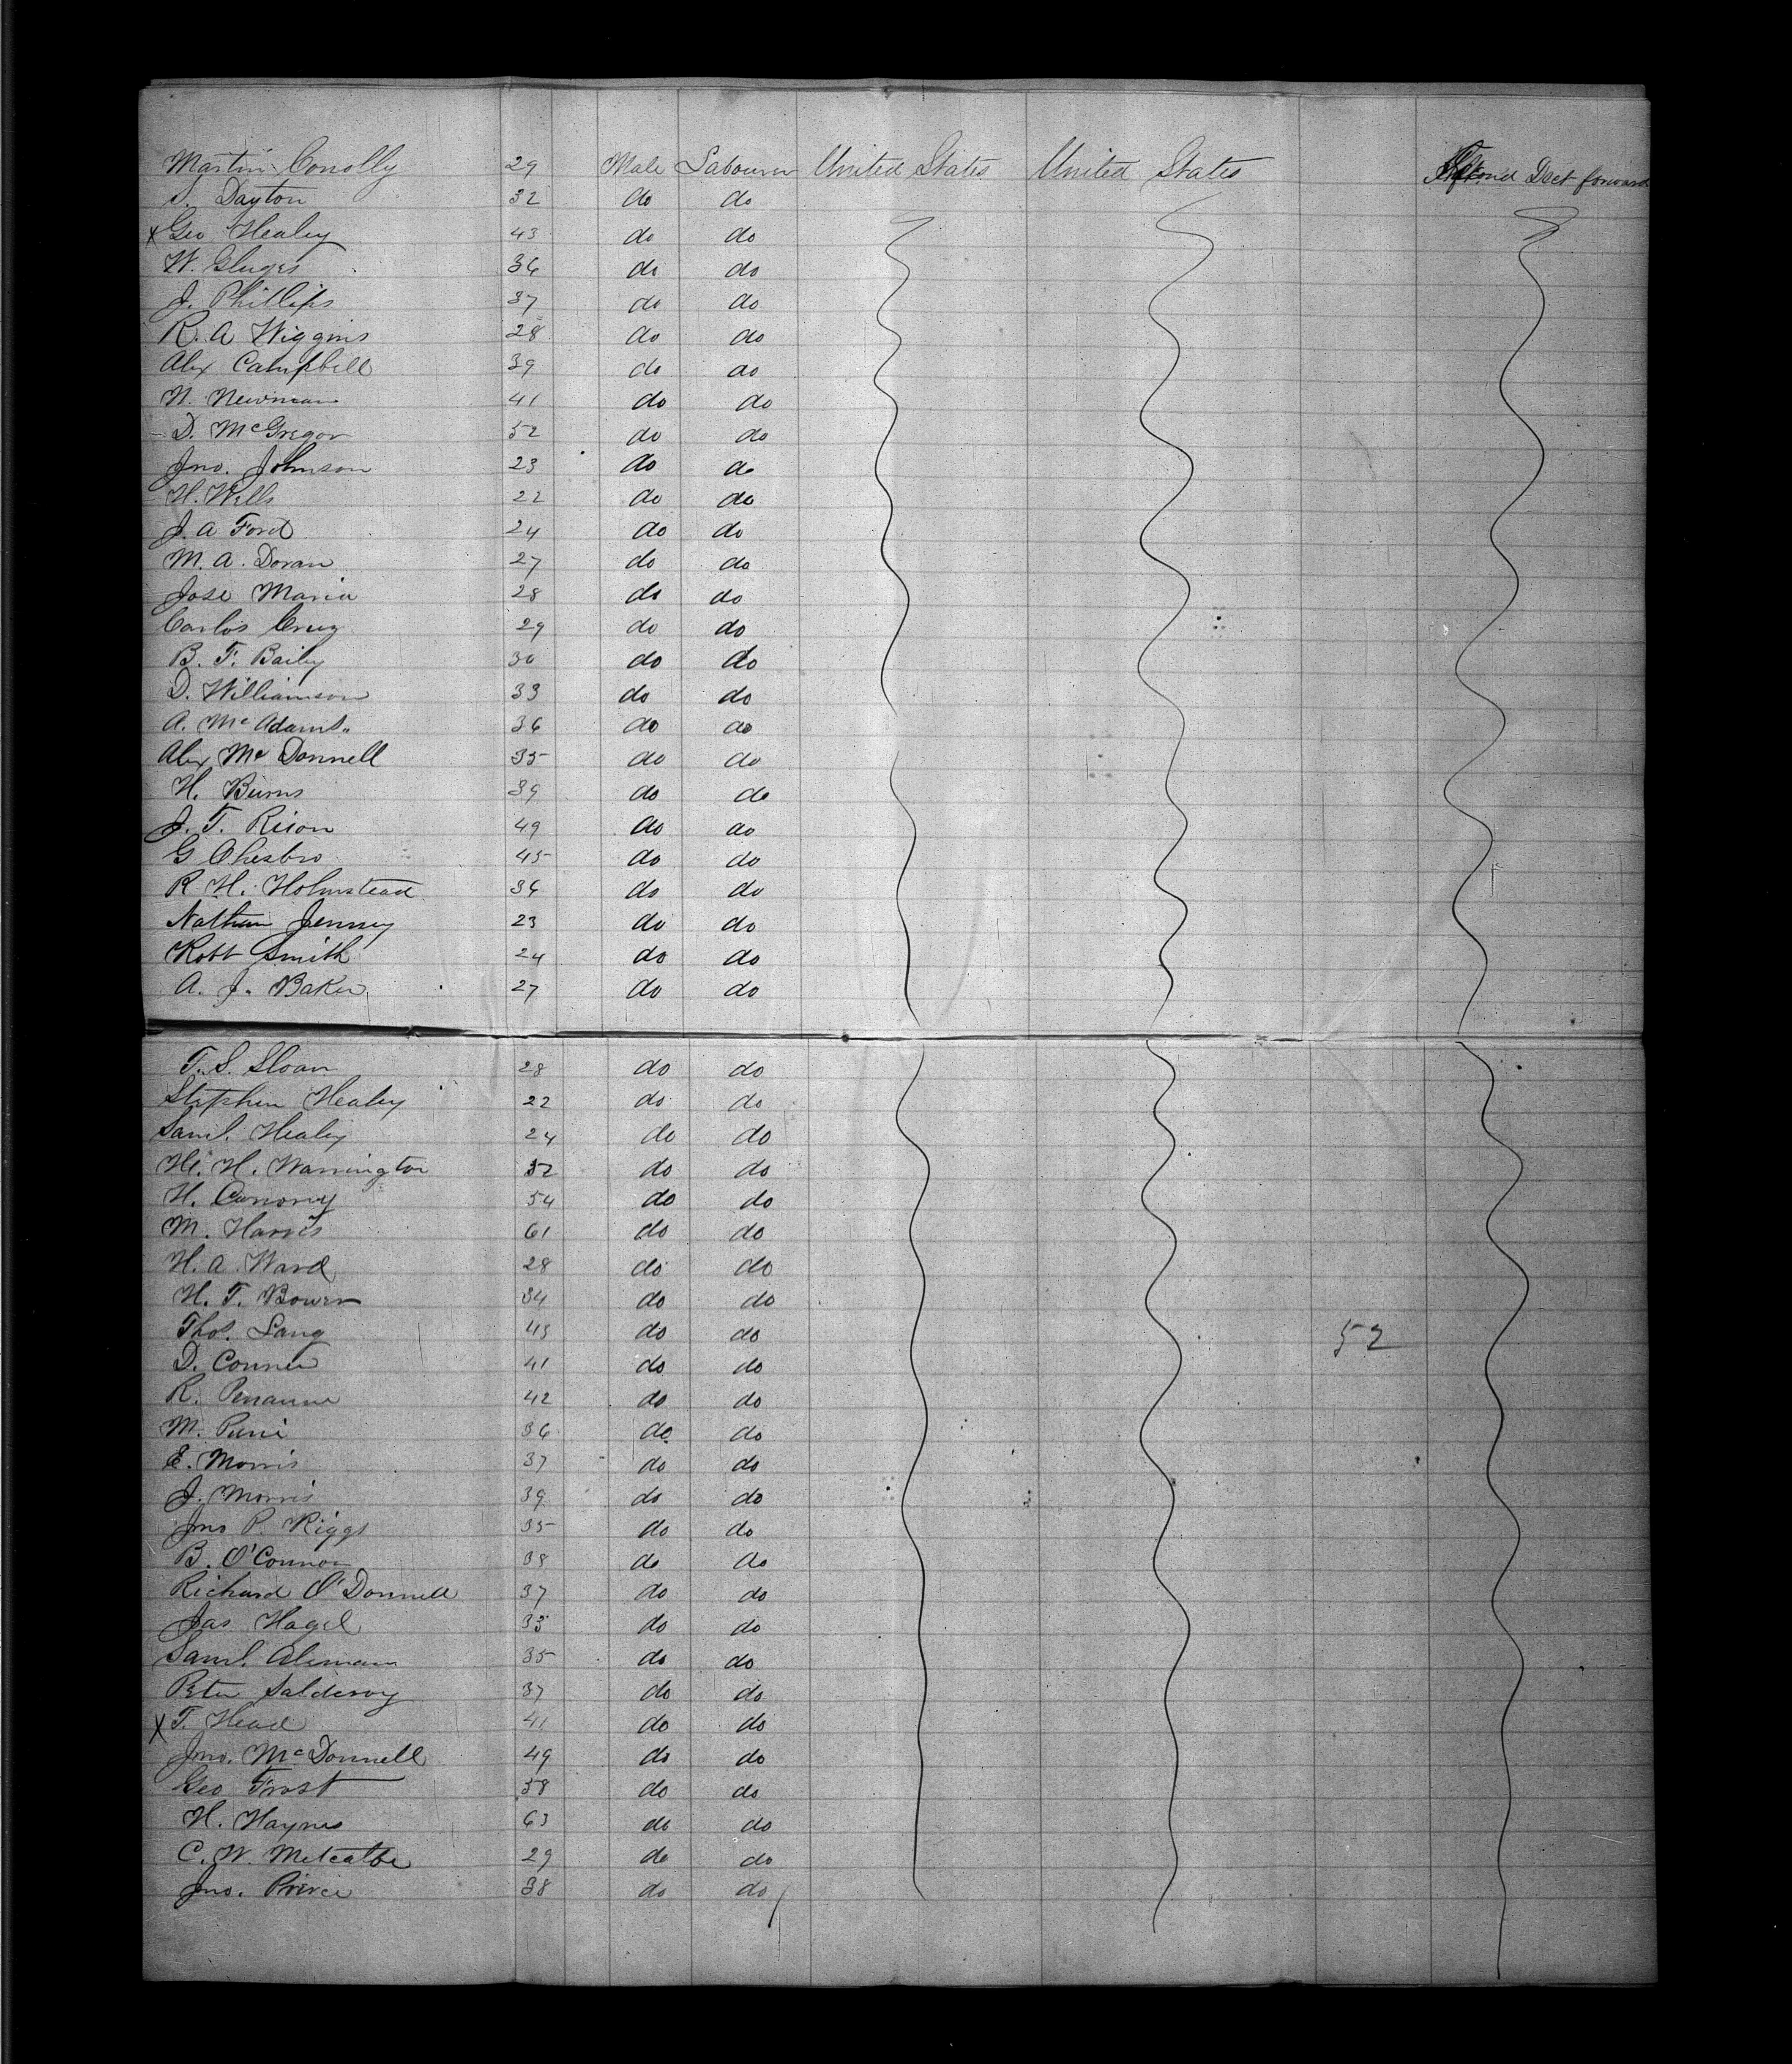 Martin Conolly 29 Male Labourer United States United States Deck forward
S. Dayton 32 do do
x Geo Healey 43 do do
W. Gluges 36 do do
J. Phillips 37 do do
R. A Wiggins 28 do do
Alex Campbell 39 do do
N. Newman 41 do do
D. McGregor 52 do do
Jno. Johnson 23 do do
H. Wells 22 do do
J. A Ford 24 do do
M. A. Doran 27 do do
Jose Maria 28 do do
Carlos Cruz 29 do do
B. F. Baily 30 do do
D. Williamson 33 do do
A. McAdams 36 do do
Alex McDonnell 35 do do
H. Burns 39 do do
J. T. Rison 49 do do
G Chesbro 45 do do
R. H. Holmstead 36 do do
Nathan Jenney 23 do do
Robt Smith 24 do do
A. J. Baker 27 do do
T. S. Sloan 28 do do
Stephen Healey 22 do do
Saml. Healey 24 do do
H. Warrington 32 do do
H. 54 do do
M. Harris 61 do do
H. A. Ward 28 do do
H. T. Bower 34 do do
Thos. Lang 43 do do 52
D. Conner 41 do do
R. 42 do do
M. 36 do do
E. Morris 37 do do
J. Morris 39 do do
Jno P. Riggs 35 do do
B. O'Connor 38 do do
Richard O'Donnell 37 do do
Jas Hagel 33 do do
Saml. Aleman 35 do do
Peter 37 do do
x T. Head 41 do do
Jno. McDonnell 49 do do
Geo Frost 58 do do
H. Haynes 63 do do
C. W. Metcalfe 29 do do
Jno. 38 do do